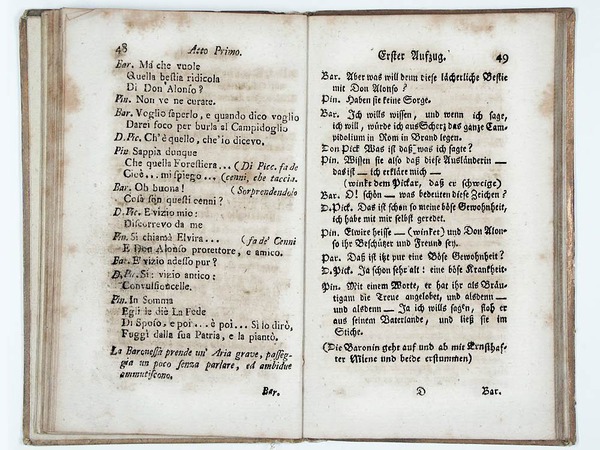 48 Atto Primo.
Bar. Ma che vuole
Quella bestia ridicola
Di Don Alonso?
Pin. Non ve ne curate.
Bar. Voglio saperlo, e quando dico voglio
Darei foco per burla al Campidoglio
D. Pic. Ch'è quello, che'io dicevo.
Pin Sappia dunque
Che quella Forestiera... (Di Picc. fa de
Cioè... mi spiego... (cenni, che taccia.
Bar. Oh buona! (Sorprendendolo
Cosa son questi cenni?
D. Pic. E vizio mio:
Discorrevo da me
Pin. Si chiama Elvira... (fa de' Cenni
E Don Alonso protettore, e amico.
Bar. E' vizio adesso pur?
D. Pic. Si: vizio antico:
Convulsioncelle.
Pin. In Somma
Egli le diè La Fede
Di Sposo, e poi... è poi... Si lo dirò,
Fuggì dalla sua Patria, e la piantò.
La Baronessa prende un' Aria grave, passeg-
gia un poco senza parlare, ed ambidue
ammutiscono.
Bar.
Erster Aufzug. 49
Bar. Aber was will denn diese lächerliche Bestie
mit Don Alonso?
Pin. Haben sie keine Sorge.
Bar. Ich wills wissen, und wenn ich sage,
ich will, würde ich aus Scherz das ganze Cam-
pidolium in Rom in Brand legen.
Don Pick Was ist daß was ich sagte?
Pin. Wissen sie also daß diese Ausländerin —
das ist — ich erkläre mich —
(winkt dem Pickar, daß er schweige)
Bar. O! schön — was bedeuten diese Zeichen?
D. Pick. Das ist schon so meine böse Gewohnheit,
ich habe mit mir selbst geredet.
Pin. Elwire heisse — (winket) und Don Alon-
so ihr Beschützer und Freund sey.
Par. Daß ist itzt pur eine Böse Gewohnheit?
D. Pick. Ja schon sehr alt: eine böse Krankheit
Pin. Mit einem Worte, er hat ihr als Bräu-
tigam die Treue angelobet, und alsdenn —
und alsdenn — Ja ich wills sagen, floh er
aus seinem Vaterlande, und ließ sie im
Stiche.
(Die Baronin geht auf und ab mit Ernsthaf-
ter Miene und beide erstummen)
D Bar.